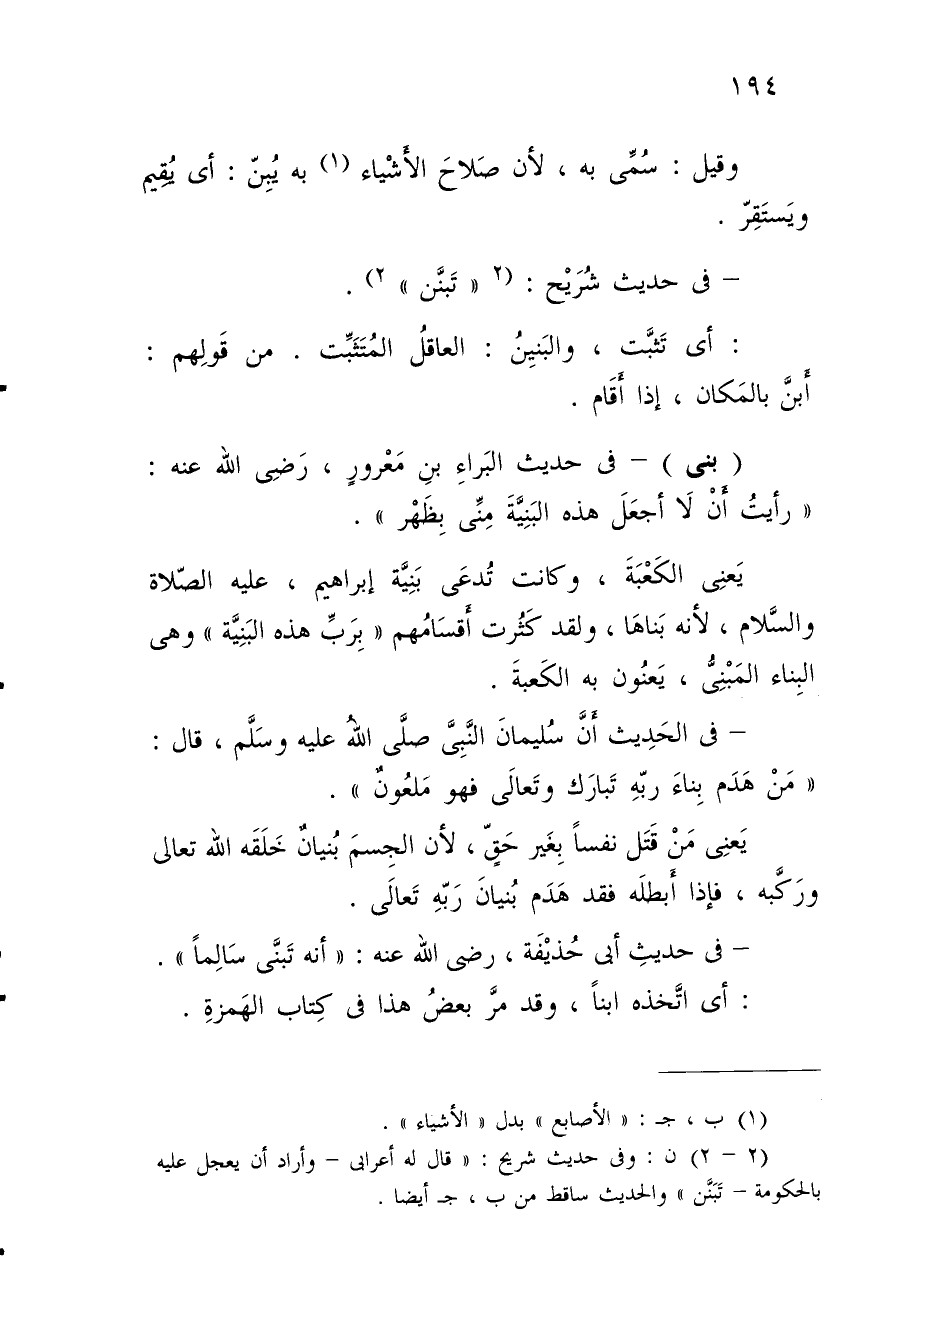 ١٩٤
وقيل : سُمِّى به ، لأن صَلاحَ الأَشْياء (١) به يُبِنّ : أى يُقِيم
ويَستَقِرّ .
– فى حديث شُرَيْح : (٢ « تَبنَّن » ٢) .
: أى تَثبَّت ، والبَنِينُ : العاقلُ المُتَثَبِّت . من قَولِهم :
أَبنَّ بالمَكان ، إذا أَقَام .
( بنى ) – فى حديث البَراءِ بنِ مَعْرورٍ ، رَضِى الله عنه :
« رأيتُ أَنْ لَا أجعَلَ هذه البَنِيَّةَ مِنِّى بِظَهْر » .
يَعنِى الكَعْبَةَ ، وكانت تُدعَى بَنِيَّة إبراهيم ، عليه الصّلاة
والسَّلام ، لأنه بَناهَا ، ولقد كَثُرت أَقسَامُهم « بِرَبِّ هذه البَنِيَّة » وهى
البِناء المَبْنِىُّ ، يَعنُون به الكَعبةَ .
– فى الحَدِيث أَنَّ سُليمانَ النَّبِىَّ صلَّى اللهُ عليه وسَلَّم ، قال :
« مَنْ هَدَم بِناءَ ربّهِ تَبارَك وتَعالَى فهو مَلعُونٌ » .
يَعنِى مَنْ قَتَل نفساً بِغَير حَقٍّ ، لأن الجِسمَ بُنيانٌ خَلَقَه الله تعالى
ورَكَّبه ، فإذا أَبطلَه فقد هَدَم بُنيانَ رَبّهِ تَعالَى .
– فى حديثِ أبى حُذيْفَة ، رضى الله عنه : « أنه تَبنَّى سَالِماً » .
: أى اتَّخذه ابناً ، وقد مرَّ بعضُ هذا فى كِتاب الهَمزةِ .
(١) ب ، جـ : « الأصابع » بدل « الأشياء » .
(٢ – ٢) ن : وفى حديث شريح : « قال له أعرابى – وأراد أن يعجل عليه
بالحكومة – تَبَنَّن » والحديث ساقط من ب ، جـ أيضا .